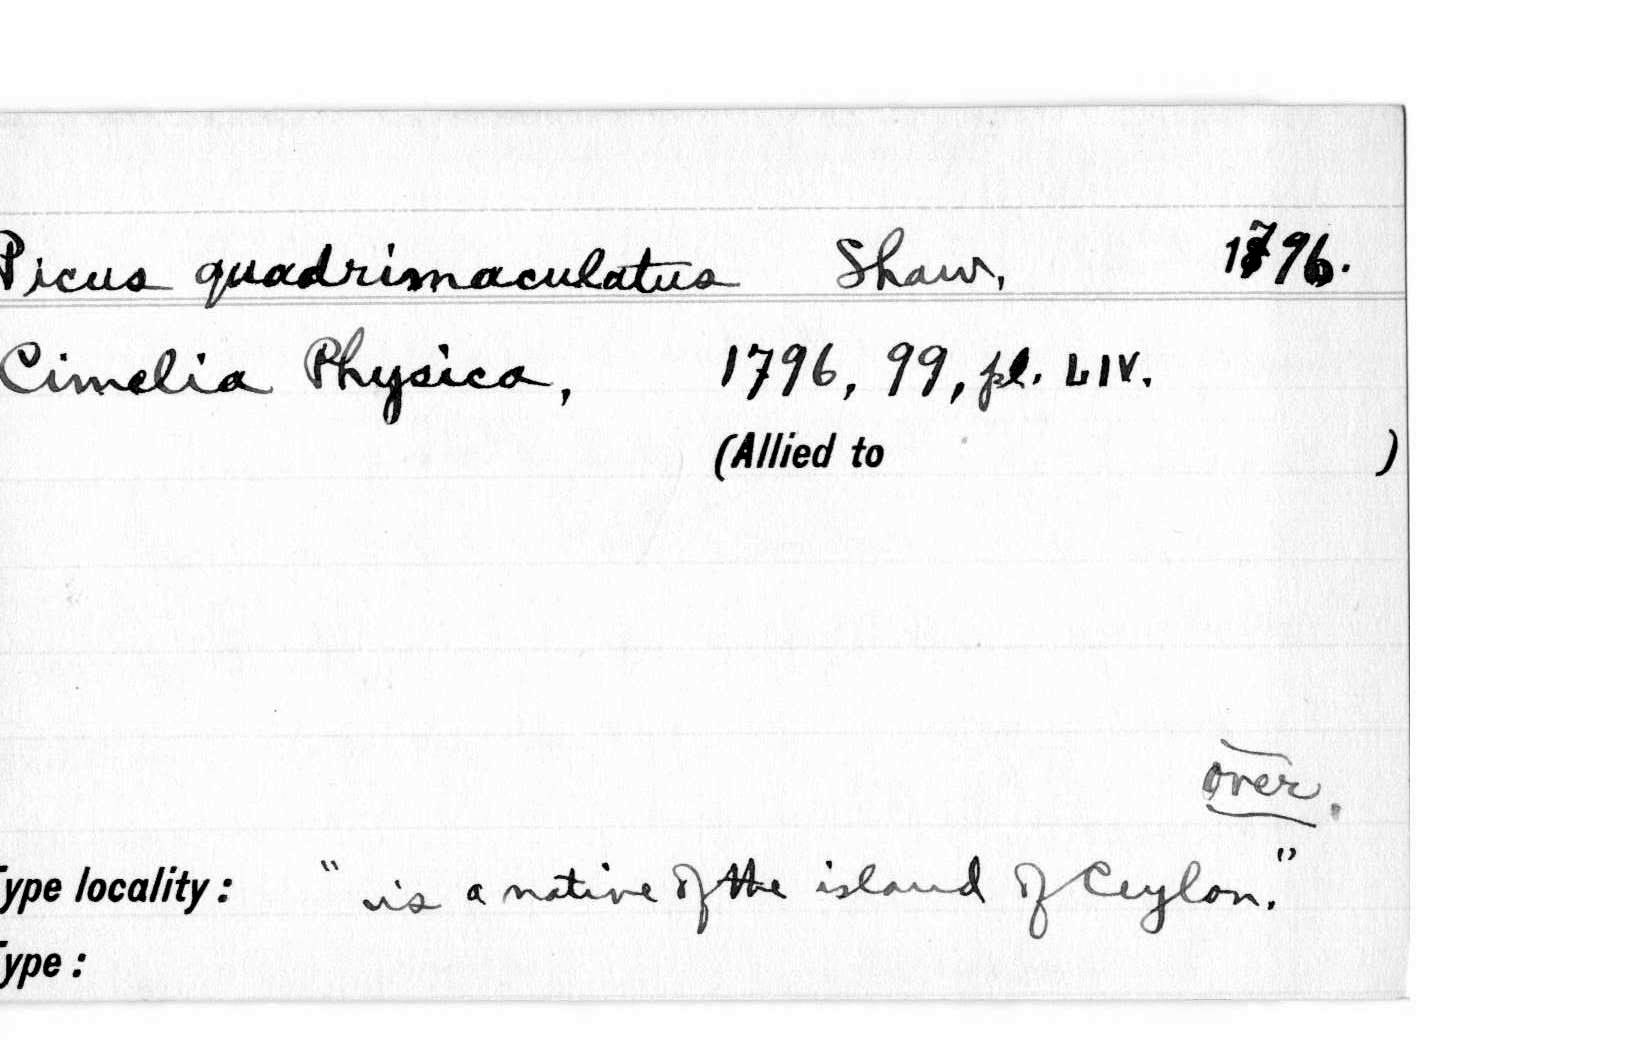 Picus quadrimaculatus Shaw, 1796.
Cimelia Physica, 1796, 99, pl. LIV.
(Allied to )
over.
Type locality: "is a native of the island of Ceylon."
Type: